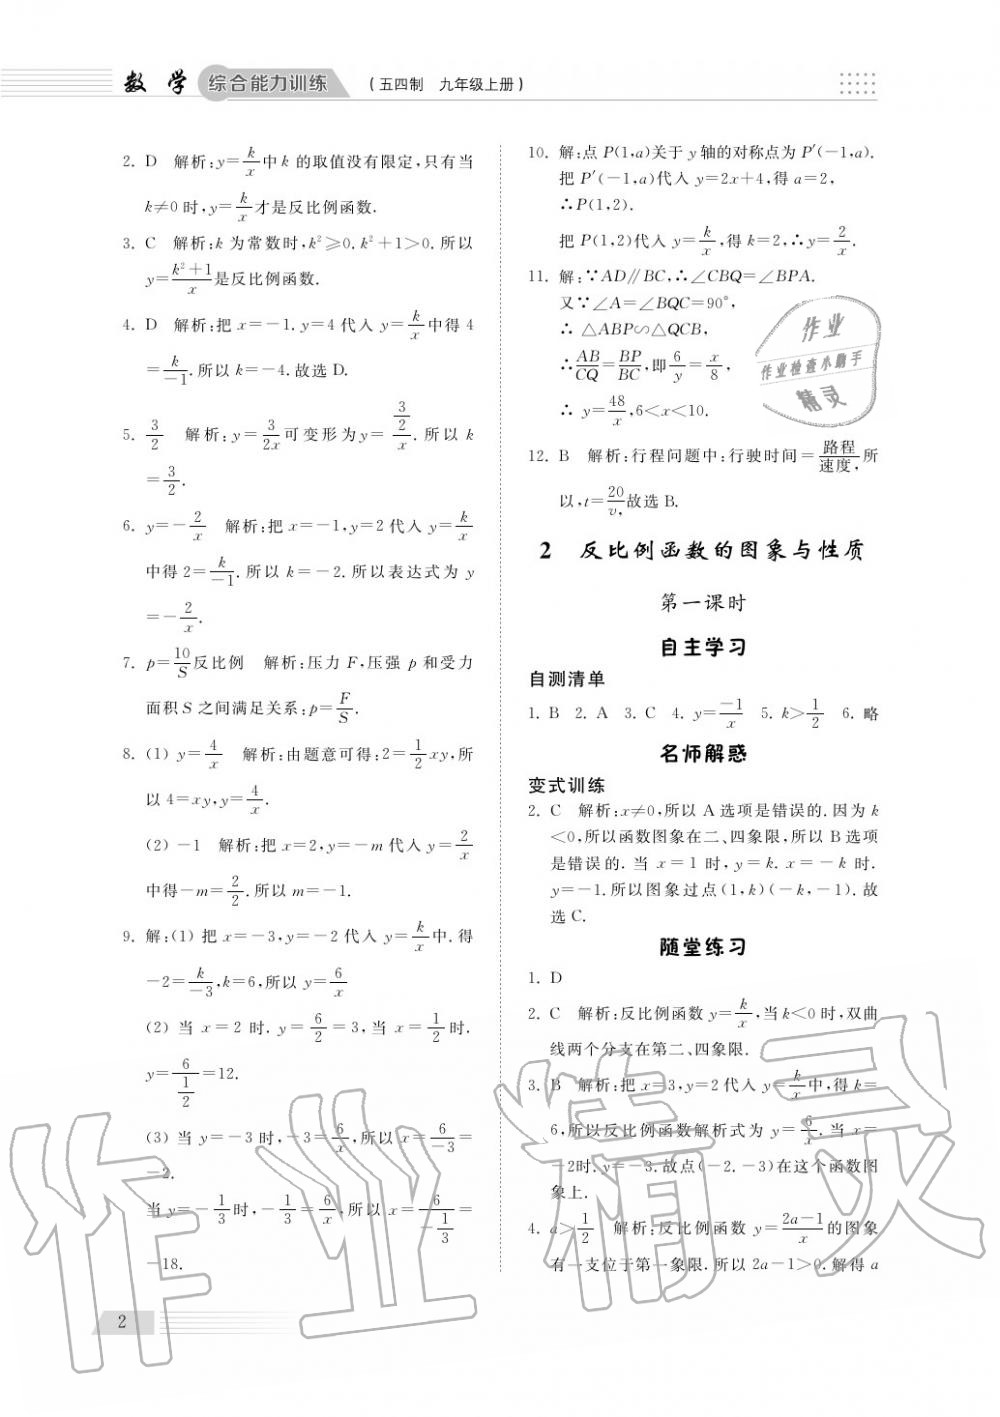 数 学 综合能力训练 (五四制 九年级上册)
2. D 解析:y=k/x中 k 的取值没有限定,只有当
k≠0 时,y=k/x才是反比例函数.
3. C 解析:k 为常数时,k²⩾0. k²+1>0. 所以
y=(k²+1)/x是反比例函数.
4. D 解析:把 x=-1. y=4 代入 y=k/x中得 4
=k/-1. 所以 k=-4. 故选 D.
5. 3/2 解析:y=3/2x可变形为 y=(3/2)/x. 所以 k
=3/2.
6. y=-2/x 解析:把 x=-1,y=2 代入 y=k/x
中得 2=k/-1. 所以 k=-2. 所以表达式为 y
=-2/x.
7. p=10/S反比例 解析:压力 F,压强 p 和受力
面积 S 之间满足关系:p=F/S.
8. (1) y=4/x 解析:由题意可得:2=1/2xy,所
以 4=xy,y=4/x.
(2) -1 解析:把 x=2,y=-m 代入 y=2/x
中得-m=2/2. 所以 m=-1.
9. 解:(1) 把 x=-3,y=-2 代入 y=k/x中. 得
-2=k/-3,k=6,所以 y=6/x
(2) 当 x=2 时. y=6/2=3,当 x=1/2时.
y=6/(1/2)=12.
(3) 当 y=-3 时,-3=6/x,所以 x=6/-3=
-2.
当 y=-1/3时,-1/3=6/x,所以 x=6/(-1/3)=
-18.
10. 解:点 P(1,a)关于 y 轴的对称点为 P′(-1,a).
把 P′(-1,a)代入 y=2x+4,得 a=2,
∴P(1,2).
把 P(1,2)代入 y=k/x,得 k=2,∴y=2/x.
11. 解:∵AD∥BC,∴∠CBQ=∠BPA.
又∵∠A=∠BQC=90°,
∴ △ABP∽△QCB,
∴AB/CQ=BP/BC,即6/y=x/8,
∴ y=48/x,6<x<10.
12. B 解析:行程问题中:行驶时间=路程/速度,所
以,t=20/v,故选 B.
2 反比例函数的图象与性质
第一课时
自主学习
自测清单
1. B 2. A 3. C 4. y=-1/x 5. k>1/2 6. 略
名师解惑
变式训练
2. C 解析:x≠0,所以 A 选项是错误的. 因为 k
<0,所以函数图象在二、四象限,所以 B 选项
是错误的. 当 x=1 时,y=k. x=-k 时.
y=-1. 所以图象过点(1,k)(-k,-1). 故
选 C.
随堂练习
1. D
2. C 解析:反比例函数 y=k/x,当 k<0 时,双曲
线两个分支在第二、四象限.
3. B 解析:把 x=3,y=2 代入 y=k/x中,得 k=
6,所以反比例函数解析式为 y=6/x. 当 x=
-2时. y=-3. 故点(-2. -3)在这个函数图
象上.
4. a>1/2 解析:反比例函数 y=(2a-1)/x的图象
有一支位于第一象限. 所以 2a-1>0. 解得 a
2
作业
作业检查小助手
精灵
作业精灵